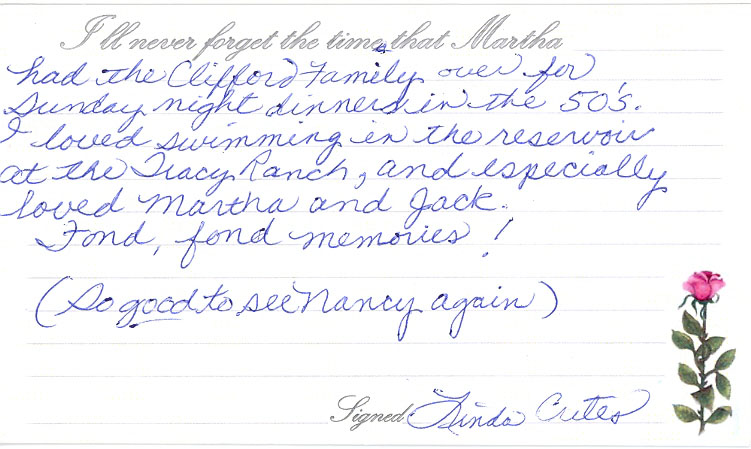 I'll never forget the times that Martha
had the Clifford Family over for
Sunday night dinners in the 50's.
I loved swimming in the reservoir
at the Tracy Ranch, and especially
loved Martha and Jack.
Fond, fond memories!
(So good to see Nancy again)
Signed Linda Crites